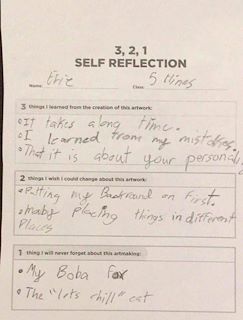 3, 2, 1
SELF REFLECTION
Name: Evie Class: 5 Hines
3 things I learned from the creation of this artwork:
•It takes along time.
•I learned from my mistakes.
•That it is about your personality
2 things I wish I could change about this artwork:
•Putting my Backround on first.
•maby placing things in different
Places
1 thing I will never forget about this artmaking:
•My Boba fox
•The "lets chill" cat